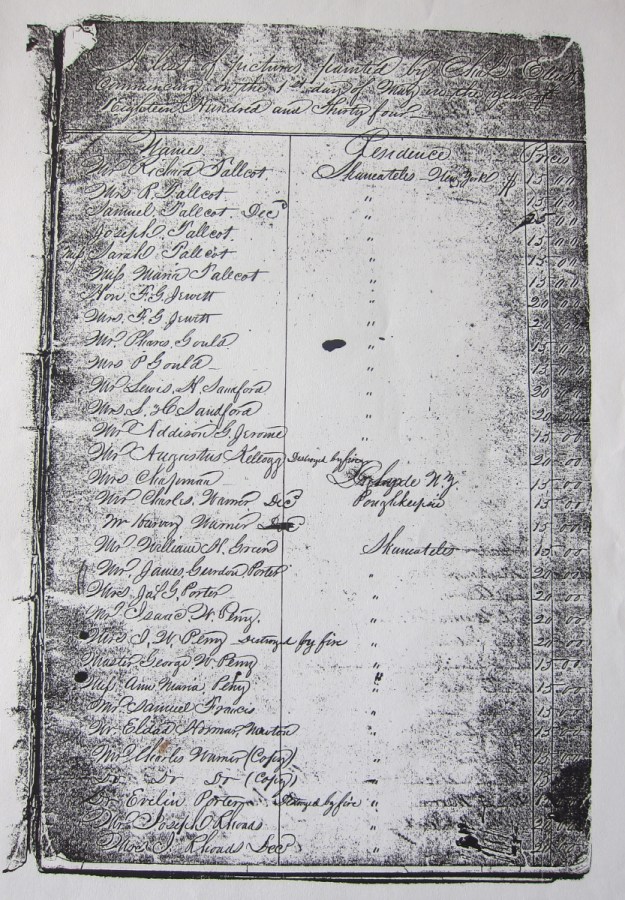 A list of pictures painted by Chas. L. Elliott
Commencing on the 1st day of May in the year of
Eighteen Hundred and Thirty four
Names Residence Prices
Mr Richard Tallcot Skaneateles New York 15.00
Mrs R. Tallcot " 15.00
Samuel Tallcot Decd " 25.00
Joseph Tallcot. " 15.00
Miss Sarah Tallcot " 15.00
Miss Maria Tallcot " 15.00
Hon. F. G. Jewett " 20.00
Mrs. F. G. Jewett " 20.00
Mr. Phares Gould " 15.00
Mrs P Gould " 15.00
Mr Lewis H. Sandford " 20.00
Mrs. L. H Sandford " 20.00
Mr Addison G. Jerome " 15.00
Mr Augustus Kellogg Destroyed by fire 20.00
Mrs Chapman N.Y. 15.00
Mr Charles Warner Decd Poughkeepsie 15.00
Mr Harvey Warner 15.00
Mr William H. Green Skaneateles 15.00
Mr James Gurdon Porter " 20.00
Mrs. Jas G. Porter " 20.00
Mr Isaac W. Perry. " 20.00
Mrs I. W Perry Destroyed by fire " 20.00
Master George W. Perry " 15.00
Miss Ann Maria Perry " 15.00
Mr Samuel Francis " 15.00
Mr Eldad Norman, Newton " 15.00
Mr Charles Warner (Copy) " 15.00
Do Do Do (Copy) " 15
Dr Evelin Porter Destroyed by fire "
Mr Joseph Rhoads " 20
Mrs J. Rhoads Decd " 20